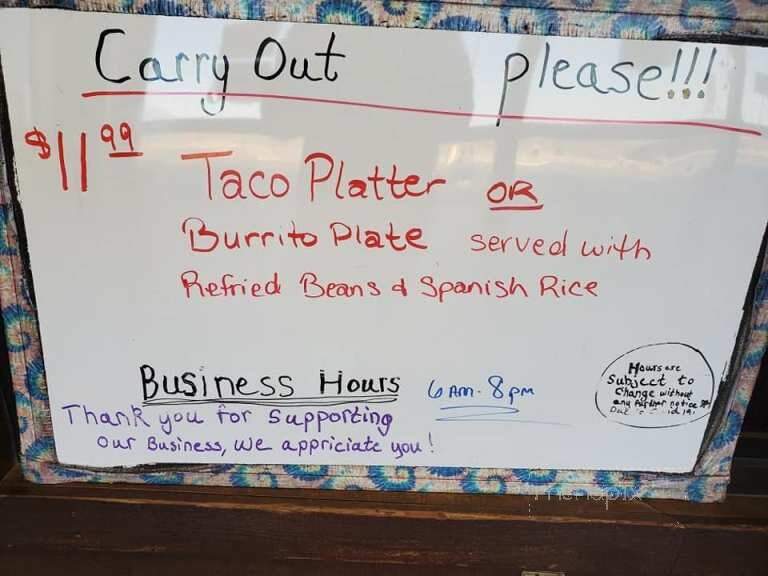 Carry Out please!!!
$11.99 Taco Platter OR
Burrito Plate served with
Refried Beans & Spanish Rice
Business Hours 6 AM - 8 PM
Thank you for supporting
our Business, we appriciate you!
Hours are
Subject to
Change without
any further notice
Due to Covid 19.
menupix